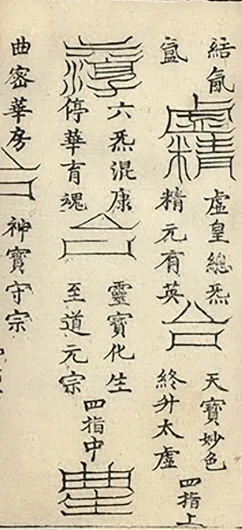 結氤
氳
虛皇總炁
精元有英
天寶妙色
終升太虛
四指上
六炁混康
停華育魂
靈寶化生
至道元宗
四指中
曲密華房
神寶守宗